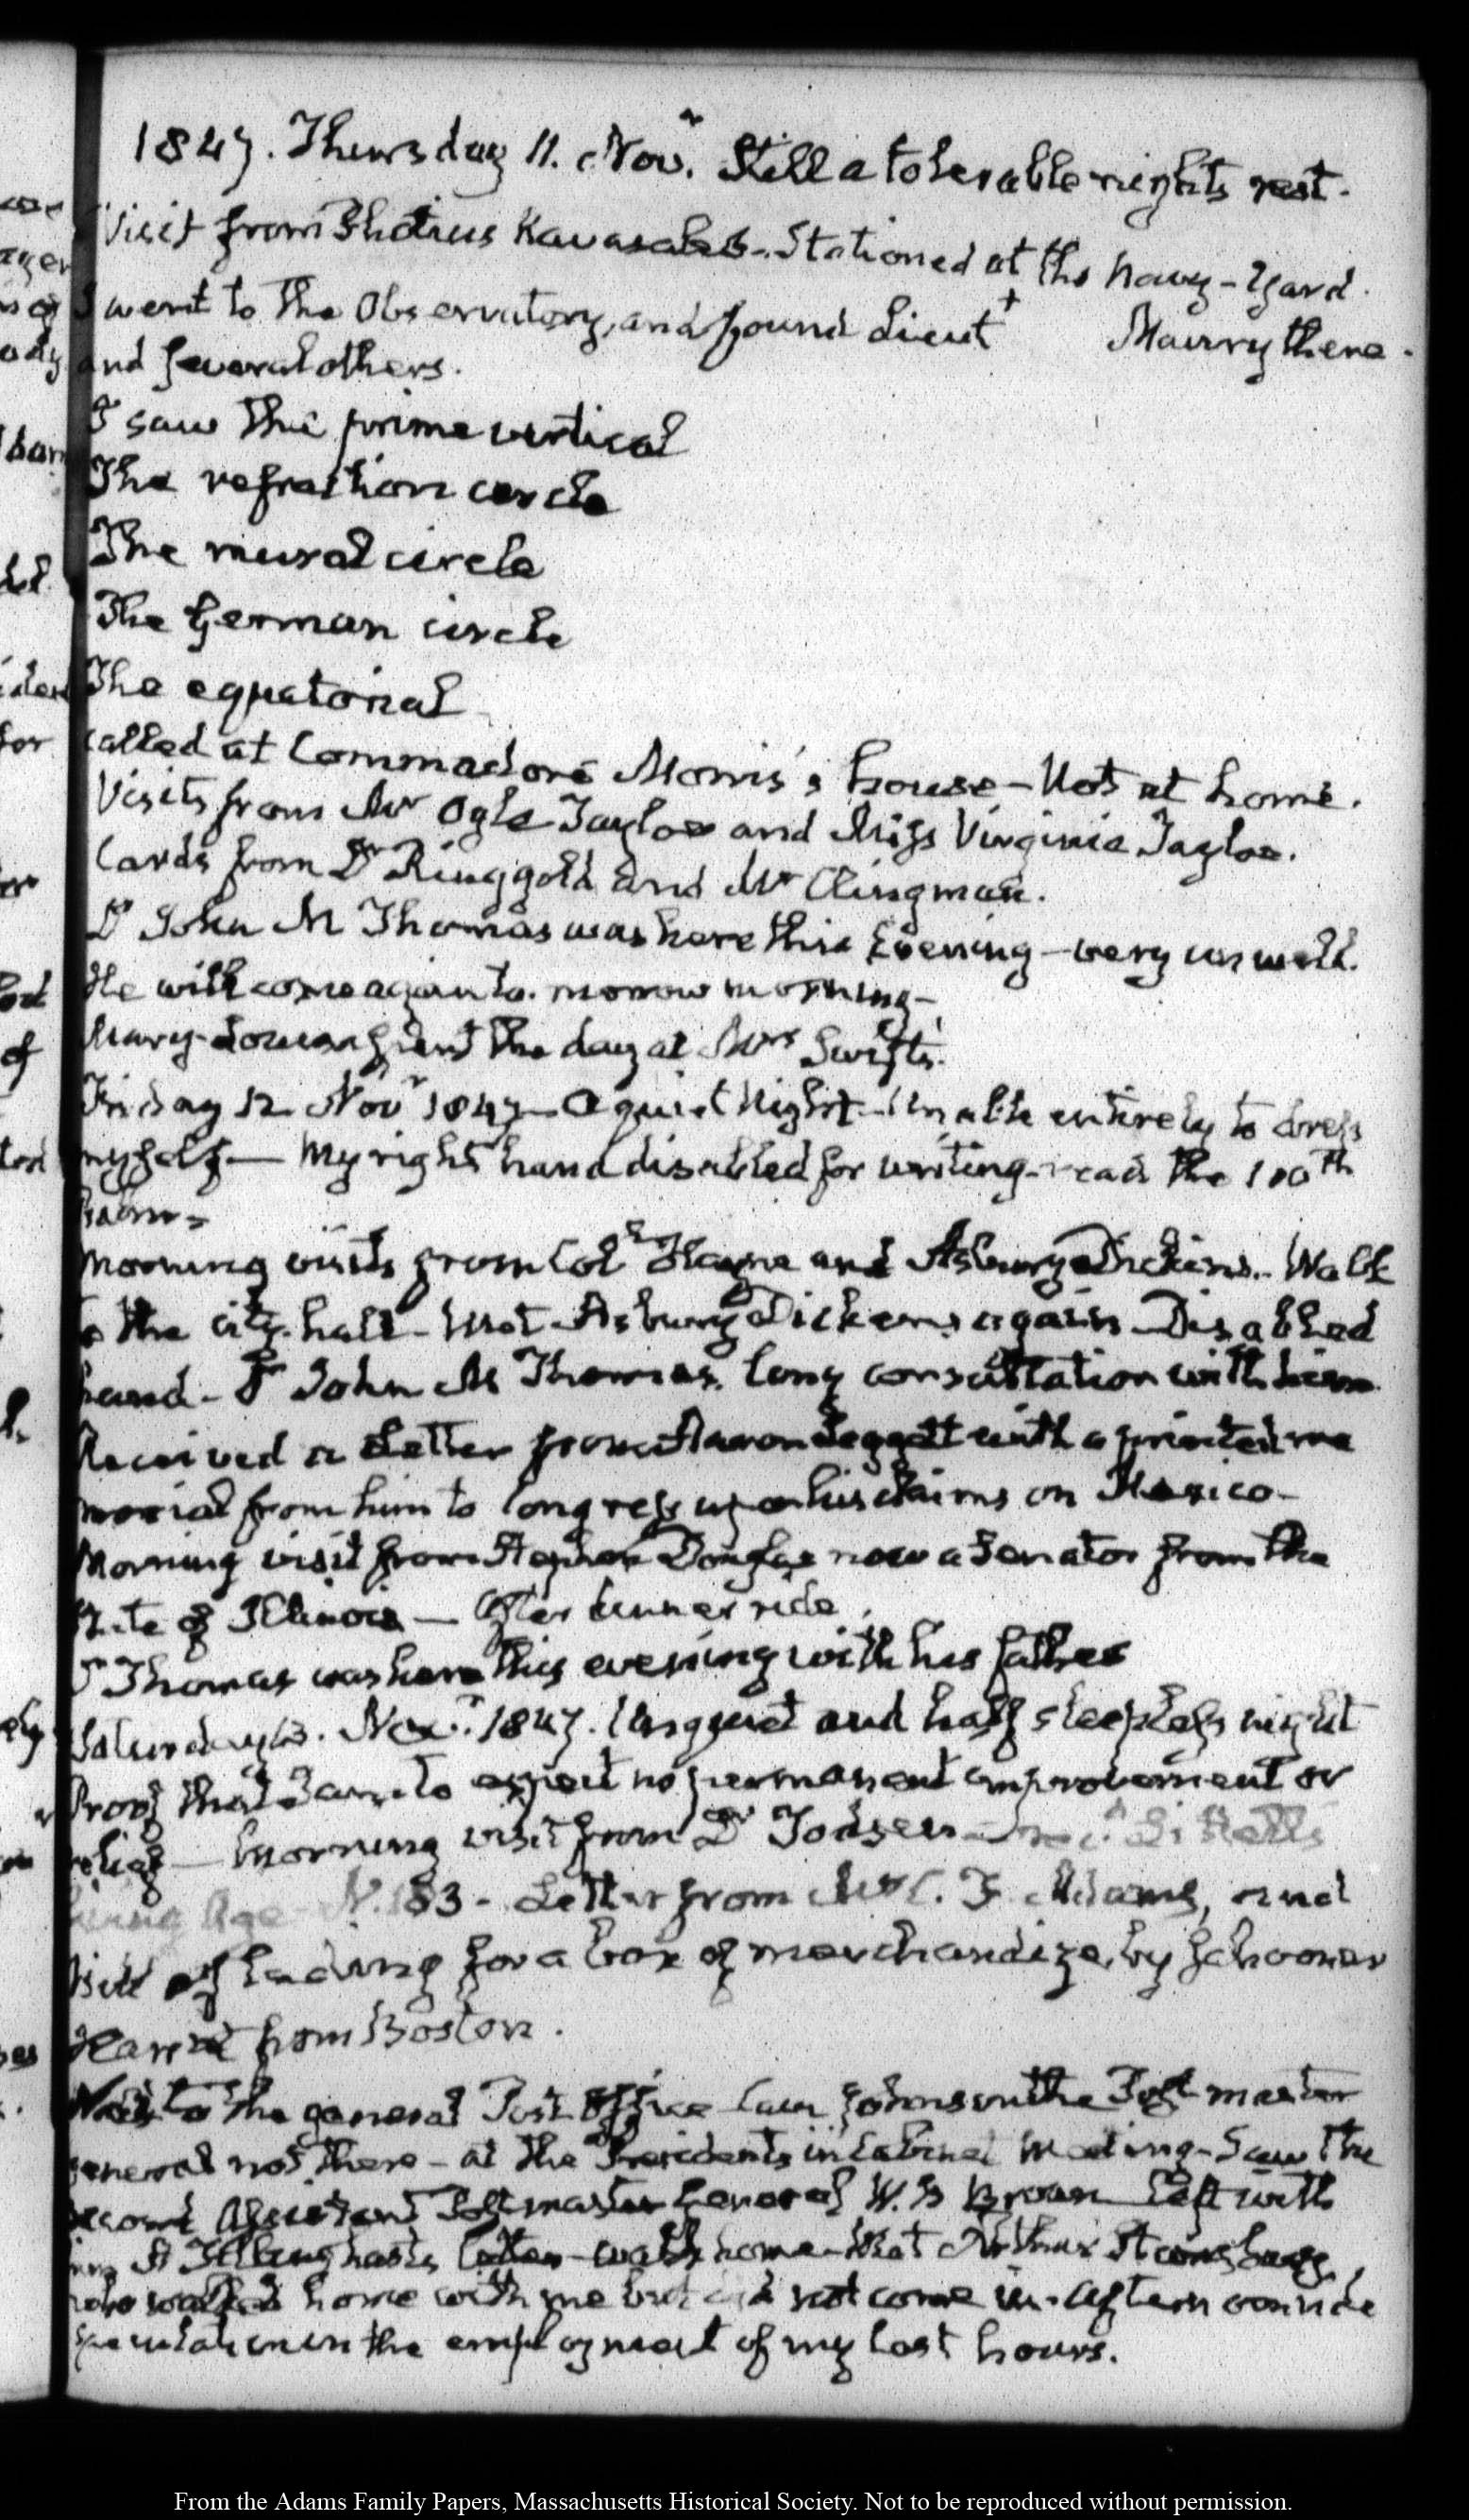 1847. Thursday 11. Novr. Still a tolerable nights rest.
Visit from Photius Kavasales. Stationed at the Navy-Yard.
I went to the Observatory, and found Lieutt Maury there.
and several others.
I saw the prime vertical
The refraction circle
The mural circle
The German circle
The equatorial
Called at Commodore Morris's house—Not at home.
Visits from Mr Ogle Tayloe and Miss Virginia Tayloe.
Cards from Dr Ringgold and Mr Clingman.
Dr John M Thomas was here this Evening—very unwell.
He will come again to-morrow morning—
Mary-Louisa spent the day at Mrs Swift's.
Friday 12 Novr 1847—A quiet Night—Unable entirely to dress
myself—My right hand disabled for writing—read the 100th
Psalm—
Morning visits from Col Hayne and Asbury Dickins. Walk
to the city-hall—Met Asbury Dickens again—Disabled
hand—Dr John M Thomas. long consultation with him
Received a Letter from Aaron Leggett with a printed me
morial from him to Congress upon his claims on Mexico—
Morning visit from Stephen Douglas now a Senator from the
State of Illinois—After dinner ride.
Dr Thomas was here this evening with his father
Saturday 13. Novr. 1847. Unquiet and half sleepless night
Proof that I am to expect no permanent improvement or
relief—Morning visit from Dr Todsen— Littells
Living Age—N. 183—Letter from Mr C. F. Adams, and
bill of lading for a box of merchandize, by Schooner
from Boston.
Walk to the general Post Office Cave Johnson the Post master
general not there—at the Presidents in Cabinet Meeting—Saw the
second Assistant Postmaster General W. B Brown—left with
him Tillinghast's letter—walk home—Met
who walked home with me but did not come in. Afternoon ride
speculation in the employment of my last hours.
From the Adams Family Papers, Massachusetts Historical Society. Not to be reproduced without permission.